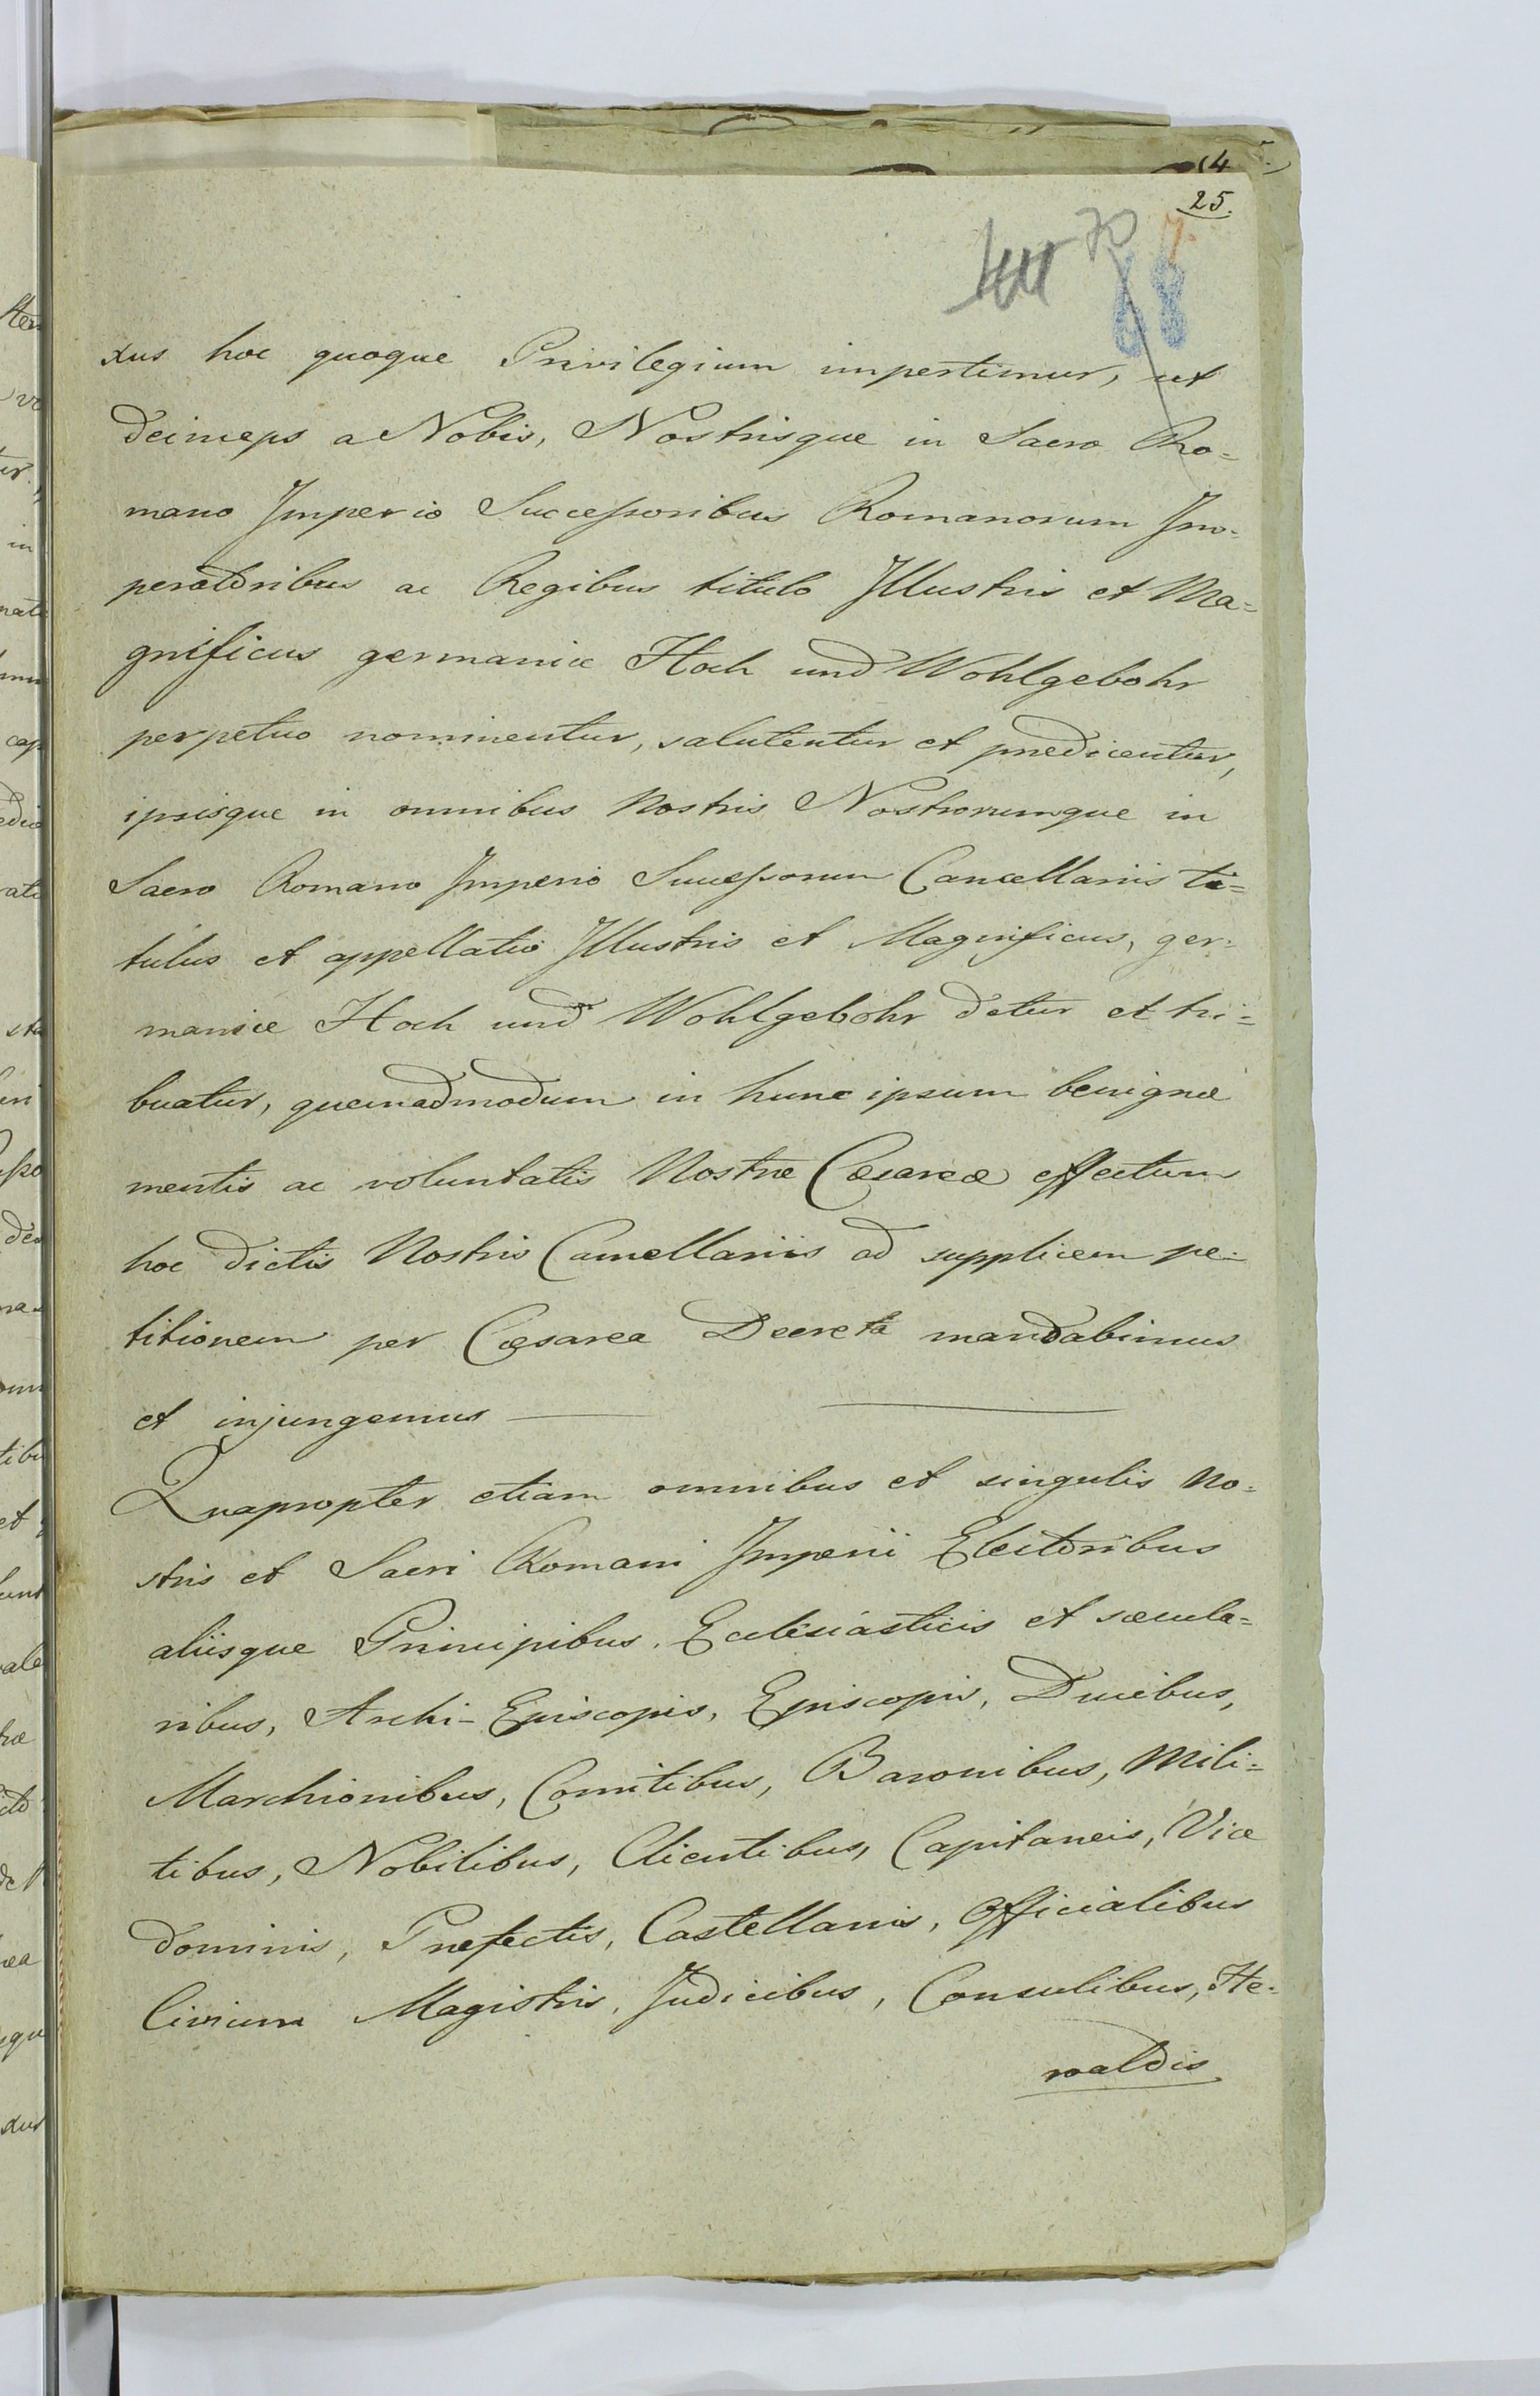 (4
25.
70
7.
88
xus hoc quoque Privilegium impertimur, ut
deinceps a Nobis, Nostrisque in Sacro Ro=
mano Imperio Successoribus Romanorum Im-
peratoribus ac Regibus titulo Illustris et Ma=
gnificus germanice Hoch und Wohlgebohr
perpetuo nominentur, salutentur et prædicentur,
ipsisque in omnibus Nostris Nostrorumque in
Sacro Romano Imperio Successorum Cancellariis ti=
tulus et appellatio Illustris et Magnificus, ger-
manice Hoch und Wohlgebohr detur et tri=
buatur, quemadmodum in hunc ipsum benignæ
mentis ac voluntatis Nostræ Cæsareæ effectum
hoc dictis Nostris Cancellariis ad supplicem pe-
titionem per Cæsarea Decreta mandabimus
et injungemus
Quapropter etiam omnibus et singulis No-
stris et Sacri Romani Imperii Electoribus
aliisque Principibus, Ecclesiasticis et sæcula=
ribus, Archi-Episcopis, Episcopis, Ducibus,
Marchionibus, Comitibus, Baronibus, Mili=
tibus, Nobilibus, Clientibus, Capitaneis, Vice
dominis, Præfectis, Castellanis, Officialibus
Civium Magistris, Judicibus, Consulibus, He-
roaldis